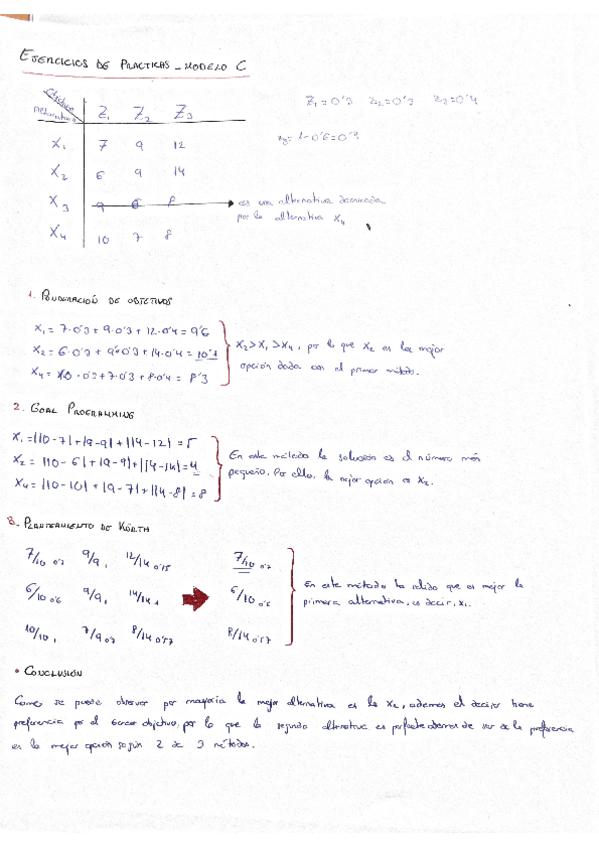 EJERCICIOS DE PRACTICAS - MODELO C
Objetivos
Alternativas
Z1 Z2 Z3
Z1 = 0'3 Z2 = 0'3 Z3 = 0'4
Z3 = 1 - 0'6 = 0'4
X1 7 9 12
X2 6 9 14
X3 9 6 8 → es una alternativa dominada
por la alternativa X4
X4 10 7 8
1. PONDERACIÓN DE OBJETIVOS
X1 = 7·0'3 + 9·0'3 + 12·0'4 = 9'6
X2 = 6·0'3 + 9·0'3 + 14·0'4 = 10'1
X4 = 10·0'3 + 7·0'3 + 8·0'4 = 8'3
X2 > X1 > X4, por lo que X2 es la mejor
opción dada con el primer método.
2. GOAL PROGRAMMING
X1 = |10-7| + |9-9| + |14-12| = 5
X2 = |10-6| + |9-9| + |14-14| = 4
X4 = |10-10| + |9-7| + |14-8| = 8
En este método la solución es el número más
pequeño. Por ello, la mejor opción es X2.
3. PLANTEAMIENTO DE KÖRTH
7/10 0'7 9/9 1 12/14 0'85 7/10 0'7
6/10 0'6 9/9 1 14/14 1 → 6/10 0'6
10/10 1 7/9 0'7 8/14 0'57 8/14 0'57
En este método ha salido que es mejor la
primera alternativa, es decir, X1.
• CONCLUSIÓN
Como se puede observar por mayoría la mejor alternativa es la X2, además el decisor tiene
preferencia por el tercer objetivo, por lo que la segunda alternativa es perfecta además de ser de la preferencia
es la mejor opción según 2 de 3 métodos.